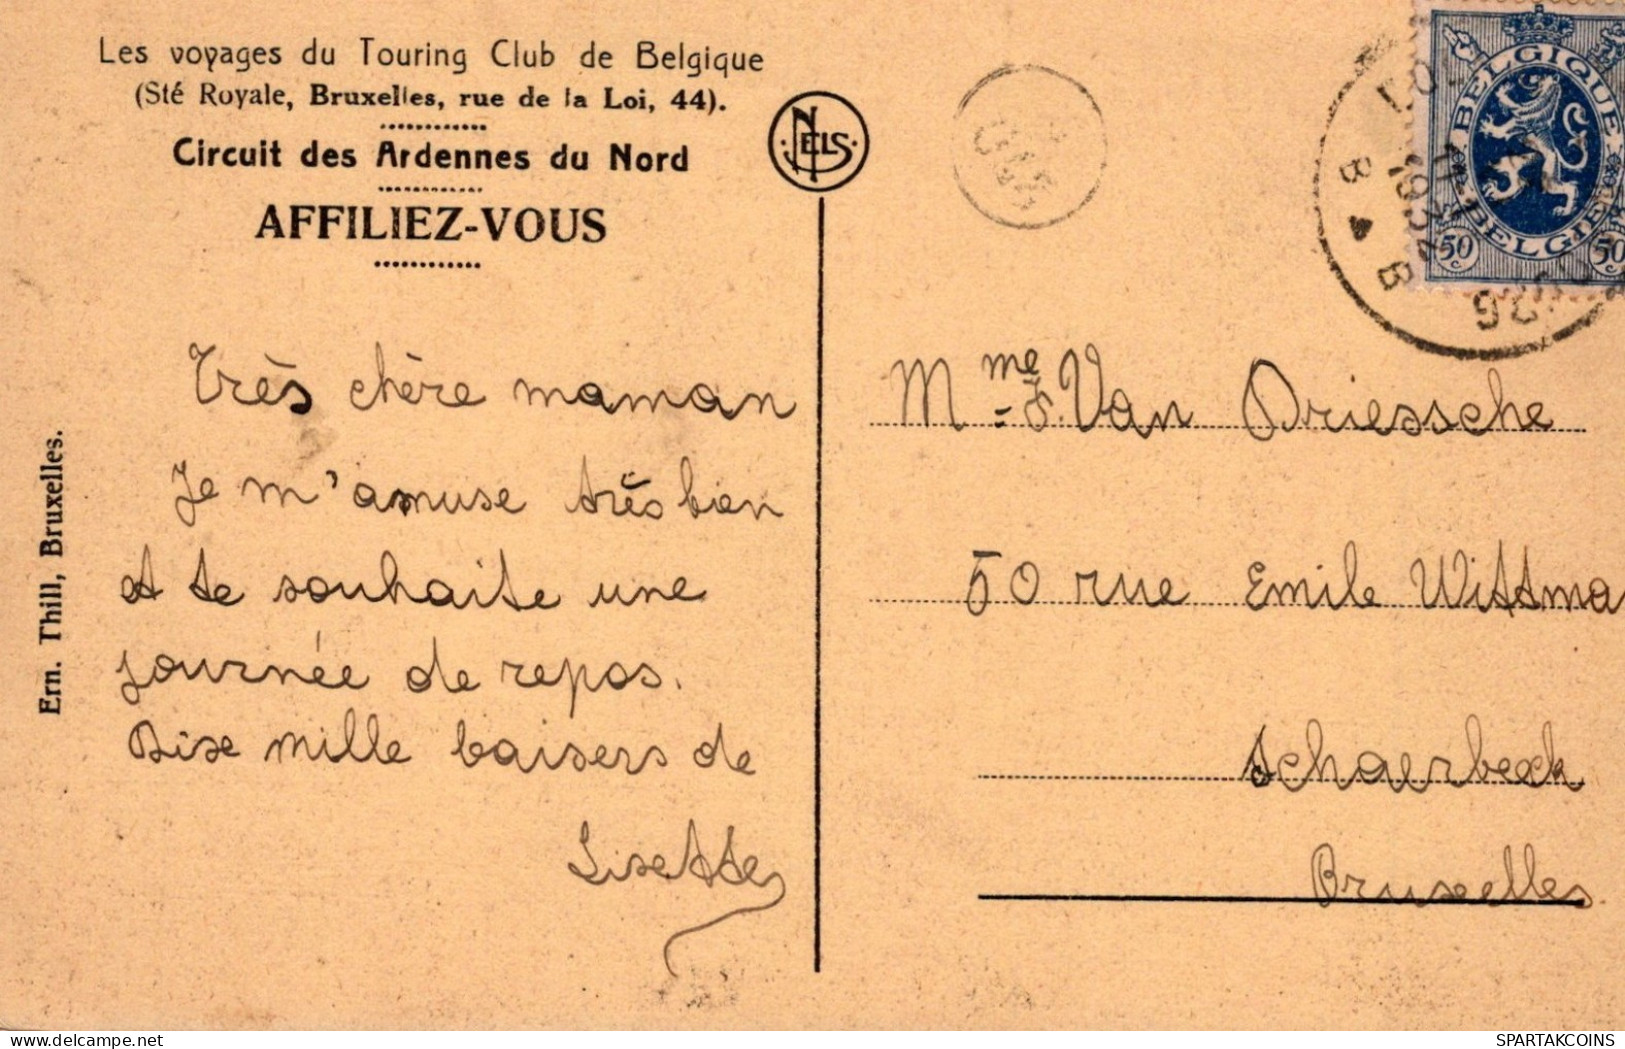 Les voyages du Touring Club de Belgique
(Sté Royale, Bruxelles, rue de la Loi, 44).
Circuit des Ardennes du Nord
AFFILIEZ-VOUS
NELS
Très chère maman
Je m'amuse très bien
et te souhaite une
journée de repos.
Dixe mille baisers de
Lisette
Ern. Thill, Bruxelles.
BELGIQUE
BELGIE
50 c 50 c
1932
B B
26
Mme F. Van Driessche
50 rue Emile Wittma
Schaerbeek
Bruxelles
SPARTAKCOINS